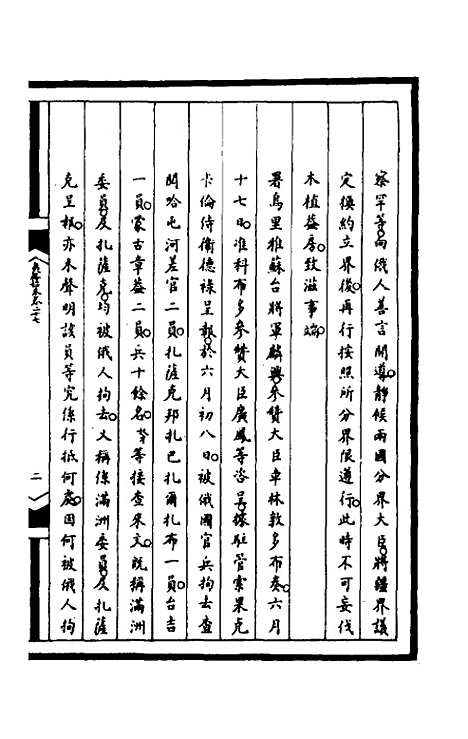 察罕等。向俄人善言開導。靜候兩國分界大臣。將疆界議
定換約立界後。再行按照所分界限遵行。此時不可妄伐
木植蓋房。致滋事端。
署烏里雅蘇台將軍麟興。參贊大臣車林敦多布奏。六月
十七日。准科布多參贊大臣廣鳳等咨呈。據駐管索果克
卡倫侍衛德祿呈報。於六月初八日。被俄國官兵拘去查
開哈屯河差官二員。扎薩克邦扎巴扎爾扎布一員。台吉
一員。蒙古章蓋二員。兵十餘名。等接查來文。旣稱滿洲
委員。及扎薩克。均被俄人拘去。又稱係滿洲委員。及扎薩
克呈報。亦未聲明該員等究係行抵何處。因何被俄人拘
二